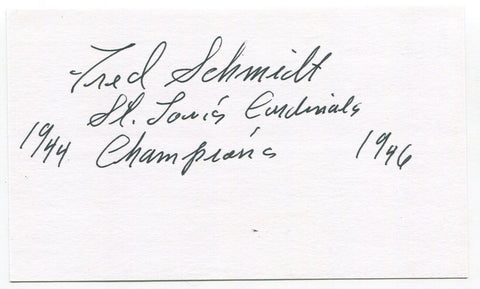 Fred Schmidt
St. Louis Cardinals
1944 Champions 1946